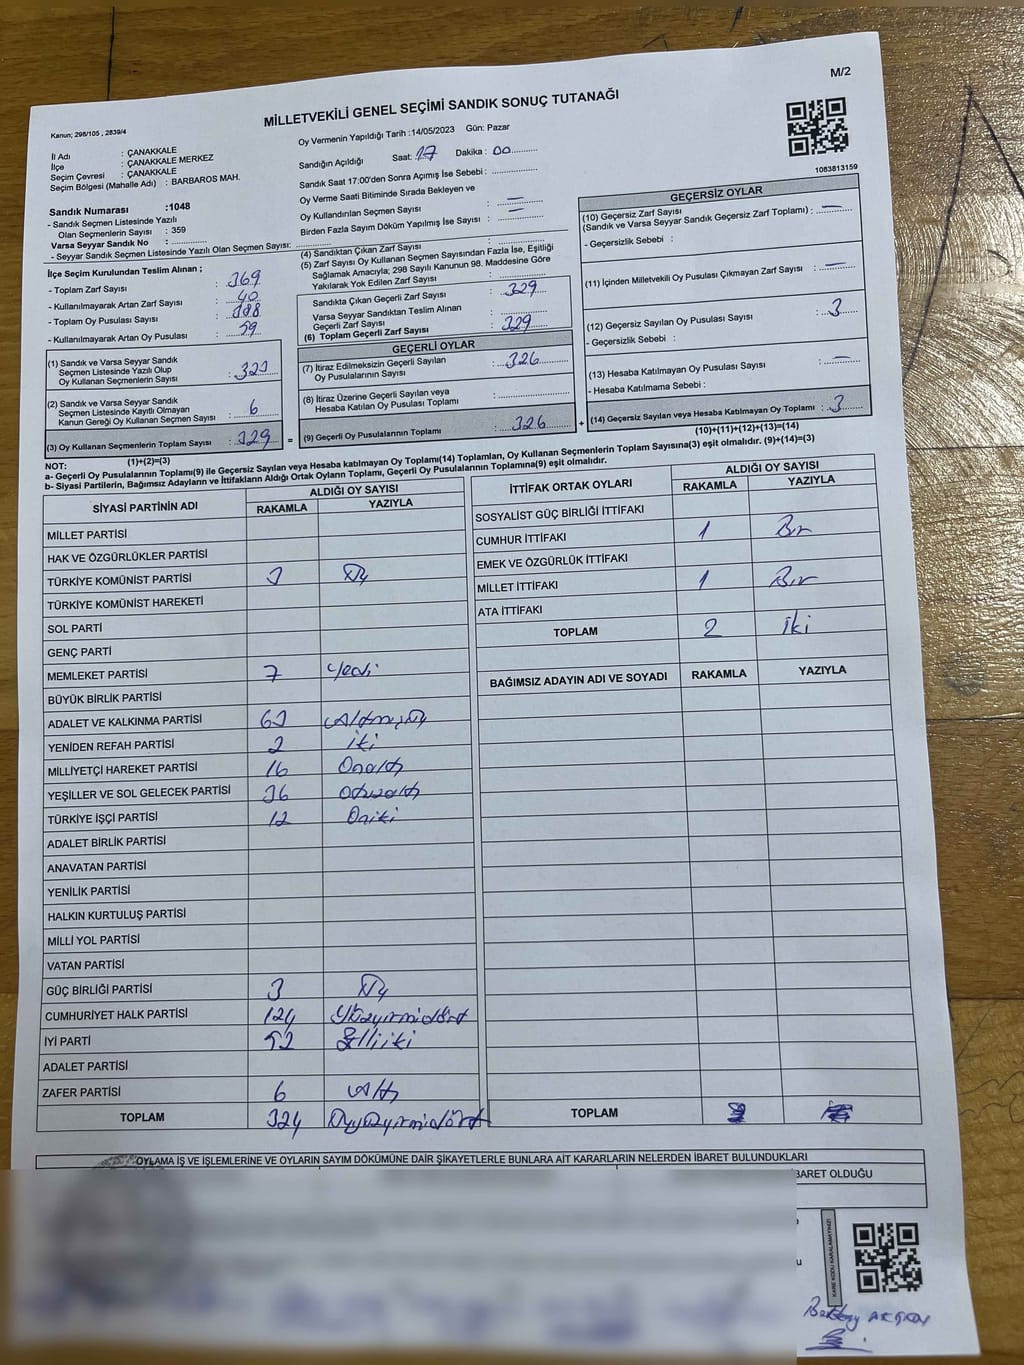 M/2
MİLLETVEKİLİ GENEL SEÇİMİ SANDIK SONUÇ TUTANAĞI
Kanun; 298/105 , 2839/4
Oy Vermenin Yapıldığı Tarih :14/05/2023 Gün: Pazar
İl Adı : ÇANAKKALE
İlçe : ÇANAKKALE MERKEZ
Seçim Çevresi : ÇANAKKALE
Seçim Bölgesi (Mahalle Adı) : BARBAROS MAH.
Sandığın Açıldığı Saat: 17 Dakika : 00
Sandık Saat 17:00'den Sonra Açımış İse Sebebi :
Oy Verme Saati Bitiminde Sırada Bekleyen ve
Oy Kullandırılan Seçmen Sayısı : —
Birden Fazla Sayım Döküm Yapılmış İse Sayısı : —
1083813159
Sandık Numarası :1048
- Sandık Seçmen Listesinde Yazılı
Olan Seçmenlerin Sayısı : 359
Varsa Seyyar Sandık No :
- Seyyar Sandık Seçmen Listesinde Yazılı Olan Seçmen Sayısı:
İlçe Seçim Kurulundan Teslim Alınan ;
- Toplam Zarf Sayısı : 369
- Kullanılmayarak Artan Zarf Sayısı : 40
- Toplam Oy Pusulası Sayısı :
- Kullanılmayarak Artan Oy Pusulası : 59
(1) Sandık ve Varsa Seyyar Sandık
Seçmen Listesinde Yazılı Olup
Oy Kullanan Seçmenlerin Sayısı : 323
(2) Sandık ve Varsa Seyyar Sandık
Seçmen Listesinde Kayıtlı Olmayan
Kanun Gereği Oy Kullanan Seçmen Sayısı : 6
(3) Oy Kullanan Seçmenlerin Toplam Sayısı : 329 =
(1)+(2)=(3)
(4) Sandıktan Çıkan Zarf Sayısı :
(5) Zarf Sayısı Oy Kullanan Seçmen Sayısından Fazla İse, Eşitliği
Sağlamak Amacıyla; 298 Sayılı Kanunun 98. Maddesine Göre
Yakılarak Yok Edilen Zarf Sayısı :
Sandıkta Çıkan Geçerli Zarf Sayısı : 329
Varsa Seyyar Sandıktan Teslim Alınan
Geçerli Zarf Sayısı :
(6) Toplam Geçerli Zarf Sayısı : 329
GEÇERLİ OYLAR
(7) İtiraz Edilmeksizin Geçerli Sayılan
Oy Pusulalarının Sayısı : 326
(8) İtiraz Üzerine Geçerli Sayılan veya
Hesaba Katılan Oy Pusulası Toplamı :
(9) Geçerli Oy Pusulalarının Toplamı : 326 +
GEÇERSİZ OYLAR
(10) Geçersiz Zarf Sayısı
(Sandık ve Varsa Seyyar Sandık Geçersiz Zarf Toplamı) : —
- Geçersizlik Sebebi :
(11) İçinden Milletvekili Oy Pusulası Çıkmayan Zarf Sayısı : —
(12) Geçersiz Sayılan Oy Pusulası Sayısı : 3
- Geçersizlik Sebebi :
(13) Hesaba Katılmayan Oy Pusulası Sayısı : —
- Hesaba Katılmama Sebebi :
(14) Geçersiz Sayılan veya Hesaba Katılmayan Oy Toplamı : 3
(10)+(11)+(12)+(13)=(14)
NOT:
a- Geçerli Oy Pusulalarının Toplamı(9) ile Geçersiz Sayılan veya Hesaba katılmayan Oy Toplamı(14) Toplamları, Oy Kullanan Seçmenlerin Toplam Sayısına(3) eşit olmalıdır. (9)+(14)=(3)
b- Siyasi Partilerin, Bağımsız Adayların ve İttifakların Aldığı Ortak Oyların Toplamı, Geçerli Oy Pusulalarının Toplamına(9) eşit olmalıdır.
SİYASİ PARTİNİN ADI ALDIĞI OY SAYISI
RAKAMLA YAZIYLA
MİLLET PARTİSİ
HAK VE ÖZGÜRLÜKLER PARTİSİ
TÜRKİYE KOMÜNİST PARTİSİ 3 Üç
TÜRKİYE KOMÜNİST HAREKETİ
SOL PARTİ
GENÇ PARTİ
MEMLEKET PARTİSİ 7 Yedi
BÜYÜK BİRLİK PARTİSİ
ADALET VE KALKINMA PARTİSİ 63 Altmışüç
YENİDEN REFAH PARTİSİ 2 İki
MİLLİYETÇİ HAREKET PARTİSİ 16 Onaltı
YEŞİLLER VE SOL GELECEK PARTİSİ 36 Otuzaltı
TÜRKİYE İŞÇİ PARTİSİ 12 Oniki
ADALET BİRLİK PARTİSİ
ANAVATAN PARTİSİ
YENİLİK PARTİSİ
HALKIN KURTULUŞ PARTİSİ
MİLLİ YOL PARTİSİ
VATAN PARTİSİ
GÜÇ BİRLİĞİ PARTİSİ 3 Üç
CUMHURİYET HALK PARTİSİ 124 Yüzyirmidört
İYİ PARTİ 52 Elliiki
ADALET PARTİSİ
ZAFER PARTİSİ 6 Altı
TOPLAM 324 Üçyüzyirmidört
İTTİFAK ORTAK OYLARI ALDIĞI OY SAYISI
RAKAMLA YAZIYLA
SOSYALİST GÜÇ BİRLİĞİ İTTİFAKI
CUMHUR İTTİFAKI 1 Bir
EMEK VE ÖZGÜRLÜK İTTİFAKI
MİLLET İTTİFAKI 1 Bir
ATA İTTİFAKI
TOPLAM 2 İki
BAĞIMSIZ ADAYIN ADI VE SOYADI RAKAMLA YAZIYLA
TOPLAM
OYLAMA İŞ VE İŞLEMLERİNE VE OYLARIN SAYIM DÖKÜMÜNE DAİR ŞİKAYETLERLE BUNLARA AİT KARARLARIN NELERDEN İBARET BULUNDUKLARI
İBARET OLDUĞU
KARE KODU KARALAMAYINIZ!